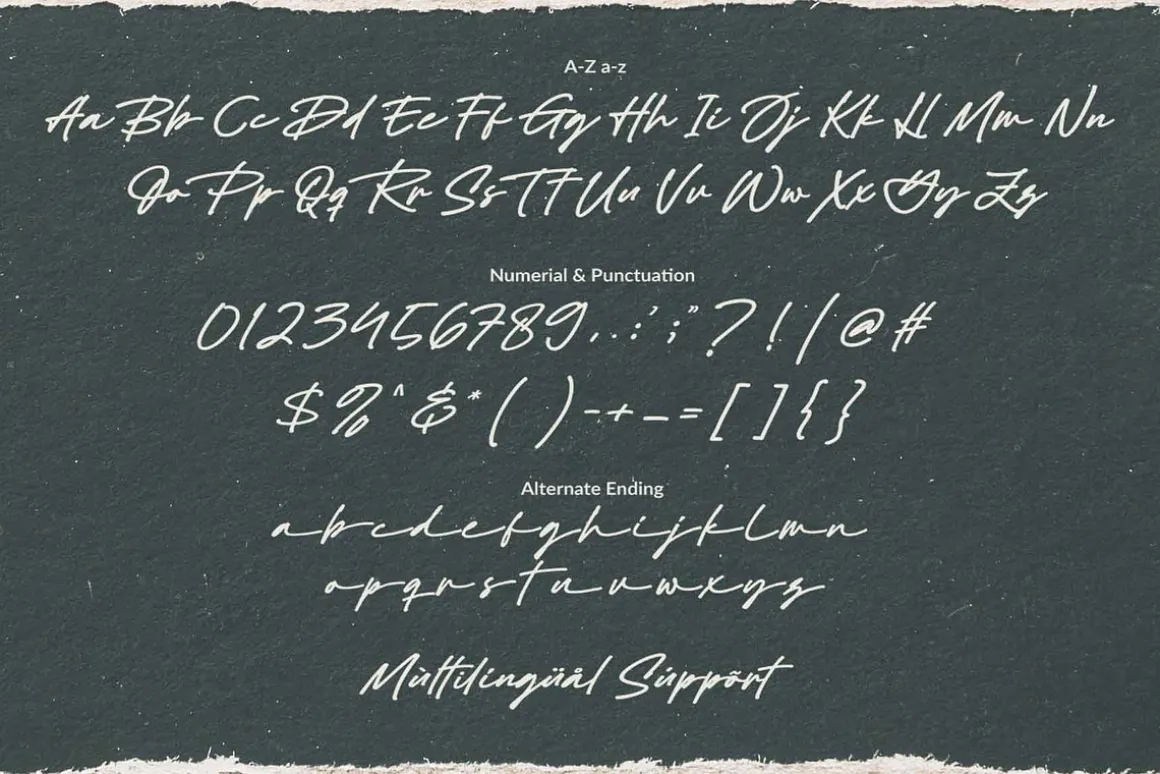 A-Z a-z
Aa Bb Cc Dd Ee Ff Gg Hh Ii Jj Kk Ll Mm Nn
Oo Pp Qq Rr Ss Tt Uu Vv Ww Xx Yy Zz
Numerial & Punctuation
0123456789,.:';"?!/@#
$%^&*()-+_=[]{}
Alternate Ending
abcdefghijklmn
opqrstuvwxyz
Mùltilingüål Súppõrt